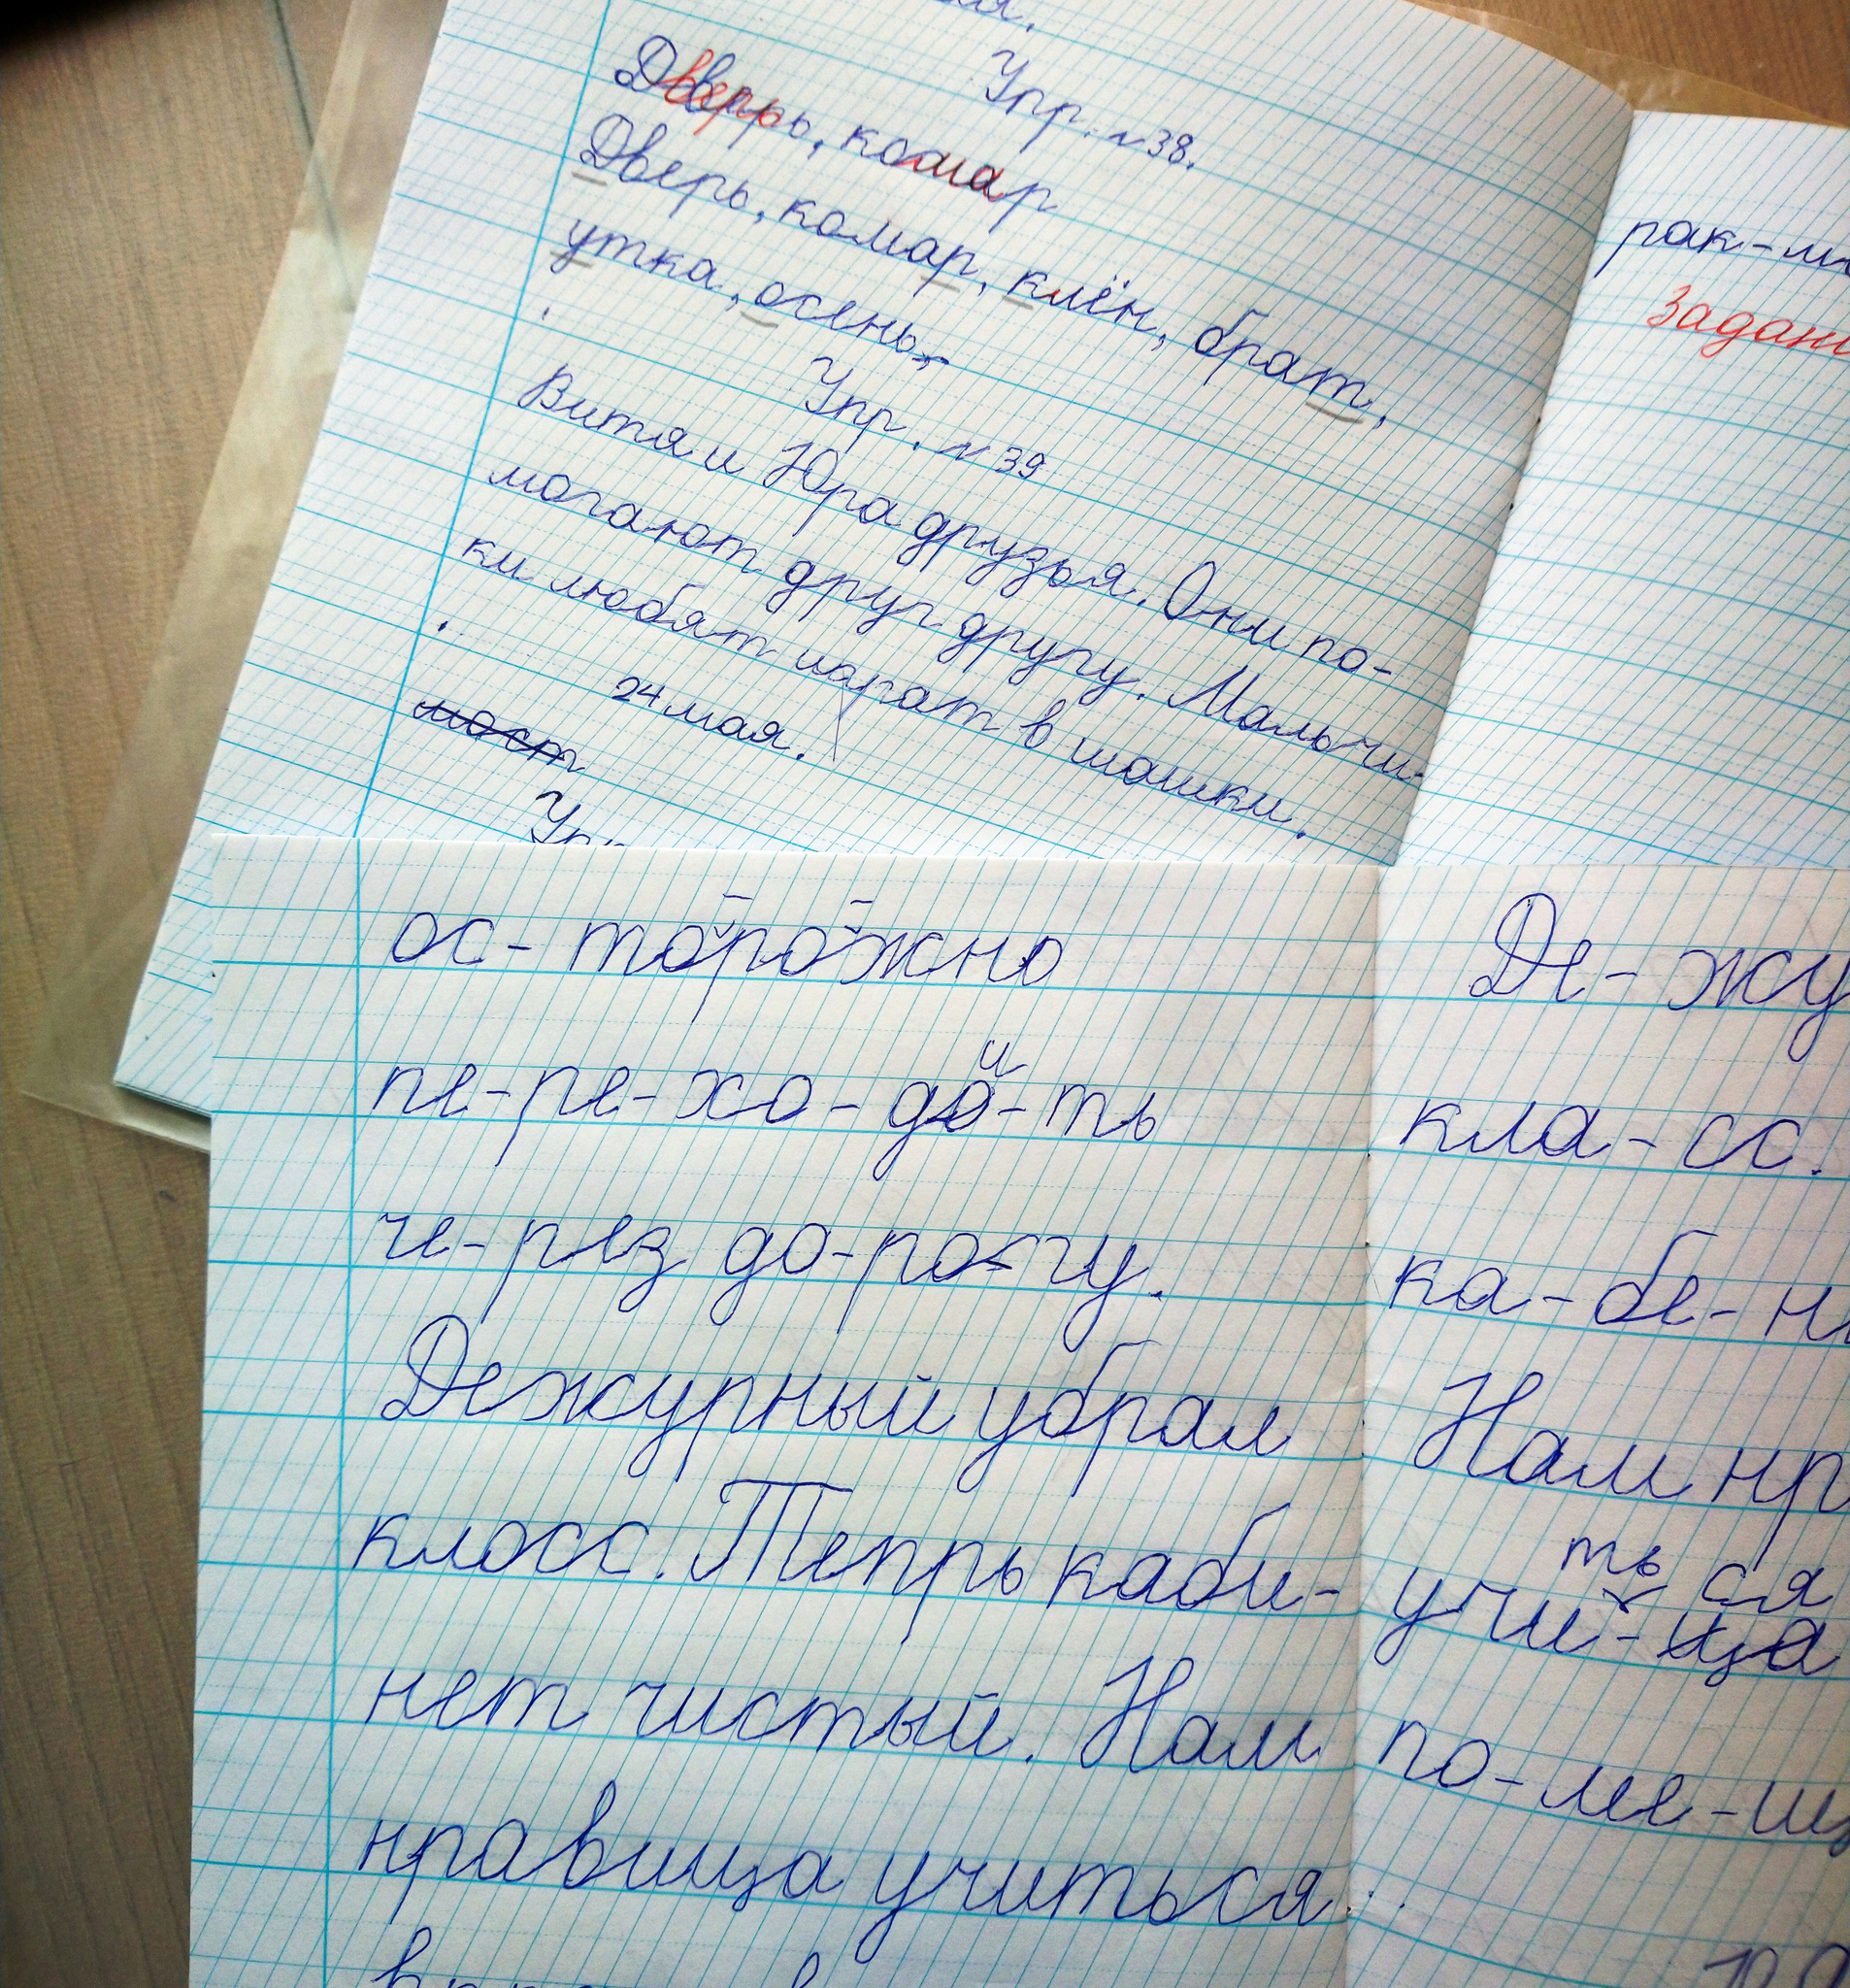 Упр. №38.
Дверь, комар
Дверь, комар, клён, брат,
утка, осень,
Упр. №39
Витя и Юра друзья. Они по-
могают друг другу. Мальчи-
ки любят играт в шашки.
24 мая.
мост
Упр
рак-
ос- торожно
пе-ре-хо-ди-ть
че-рез до-ро-гу.
Дежурный убрал
класс. Тепрь каби-
нет чистый. Нам
нравица учиться
Де-жу
кла-сс.
ка-бе-н
Нам нр
ть ся
учи-ца
по-ме-щ